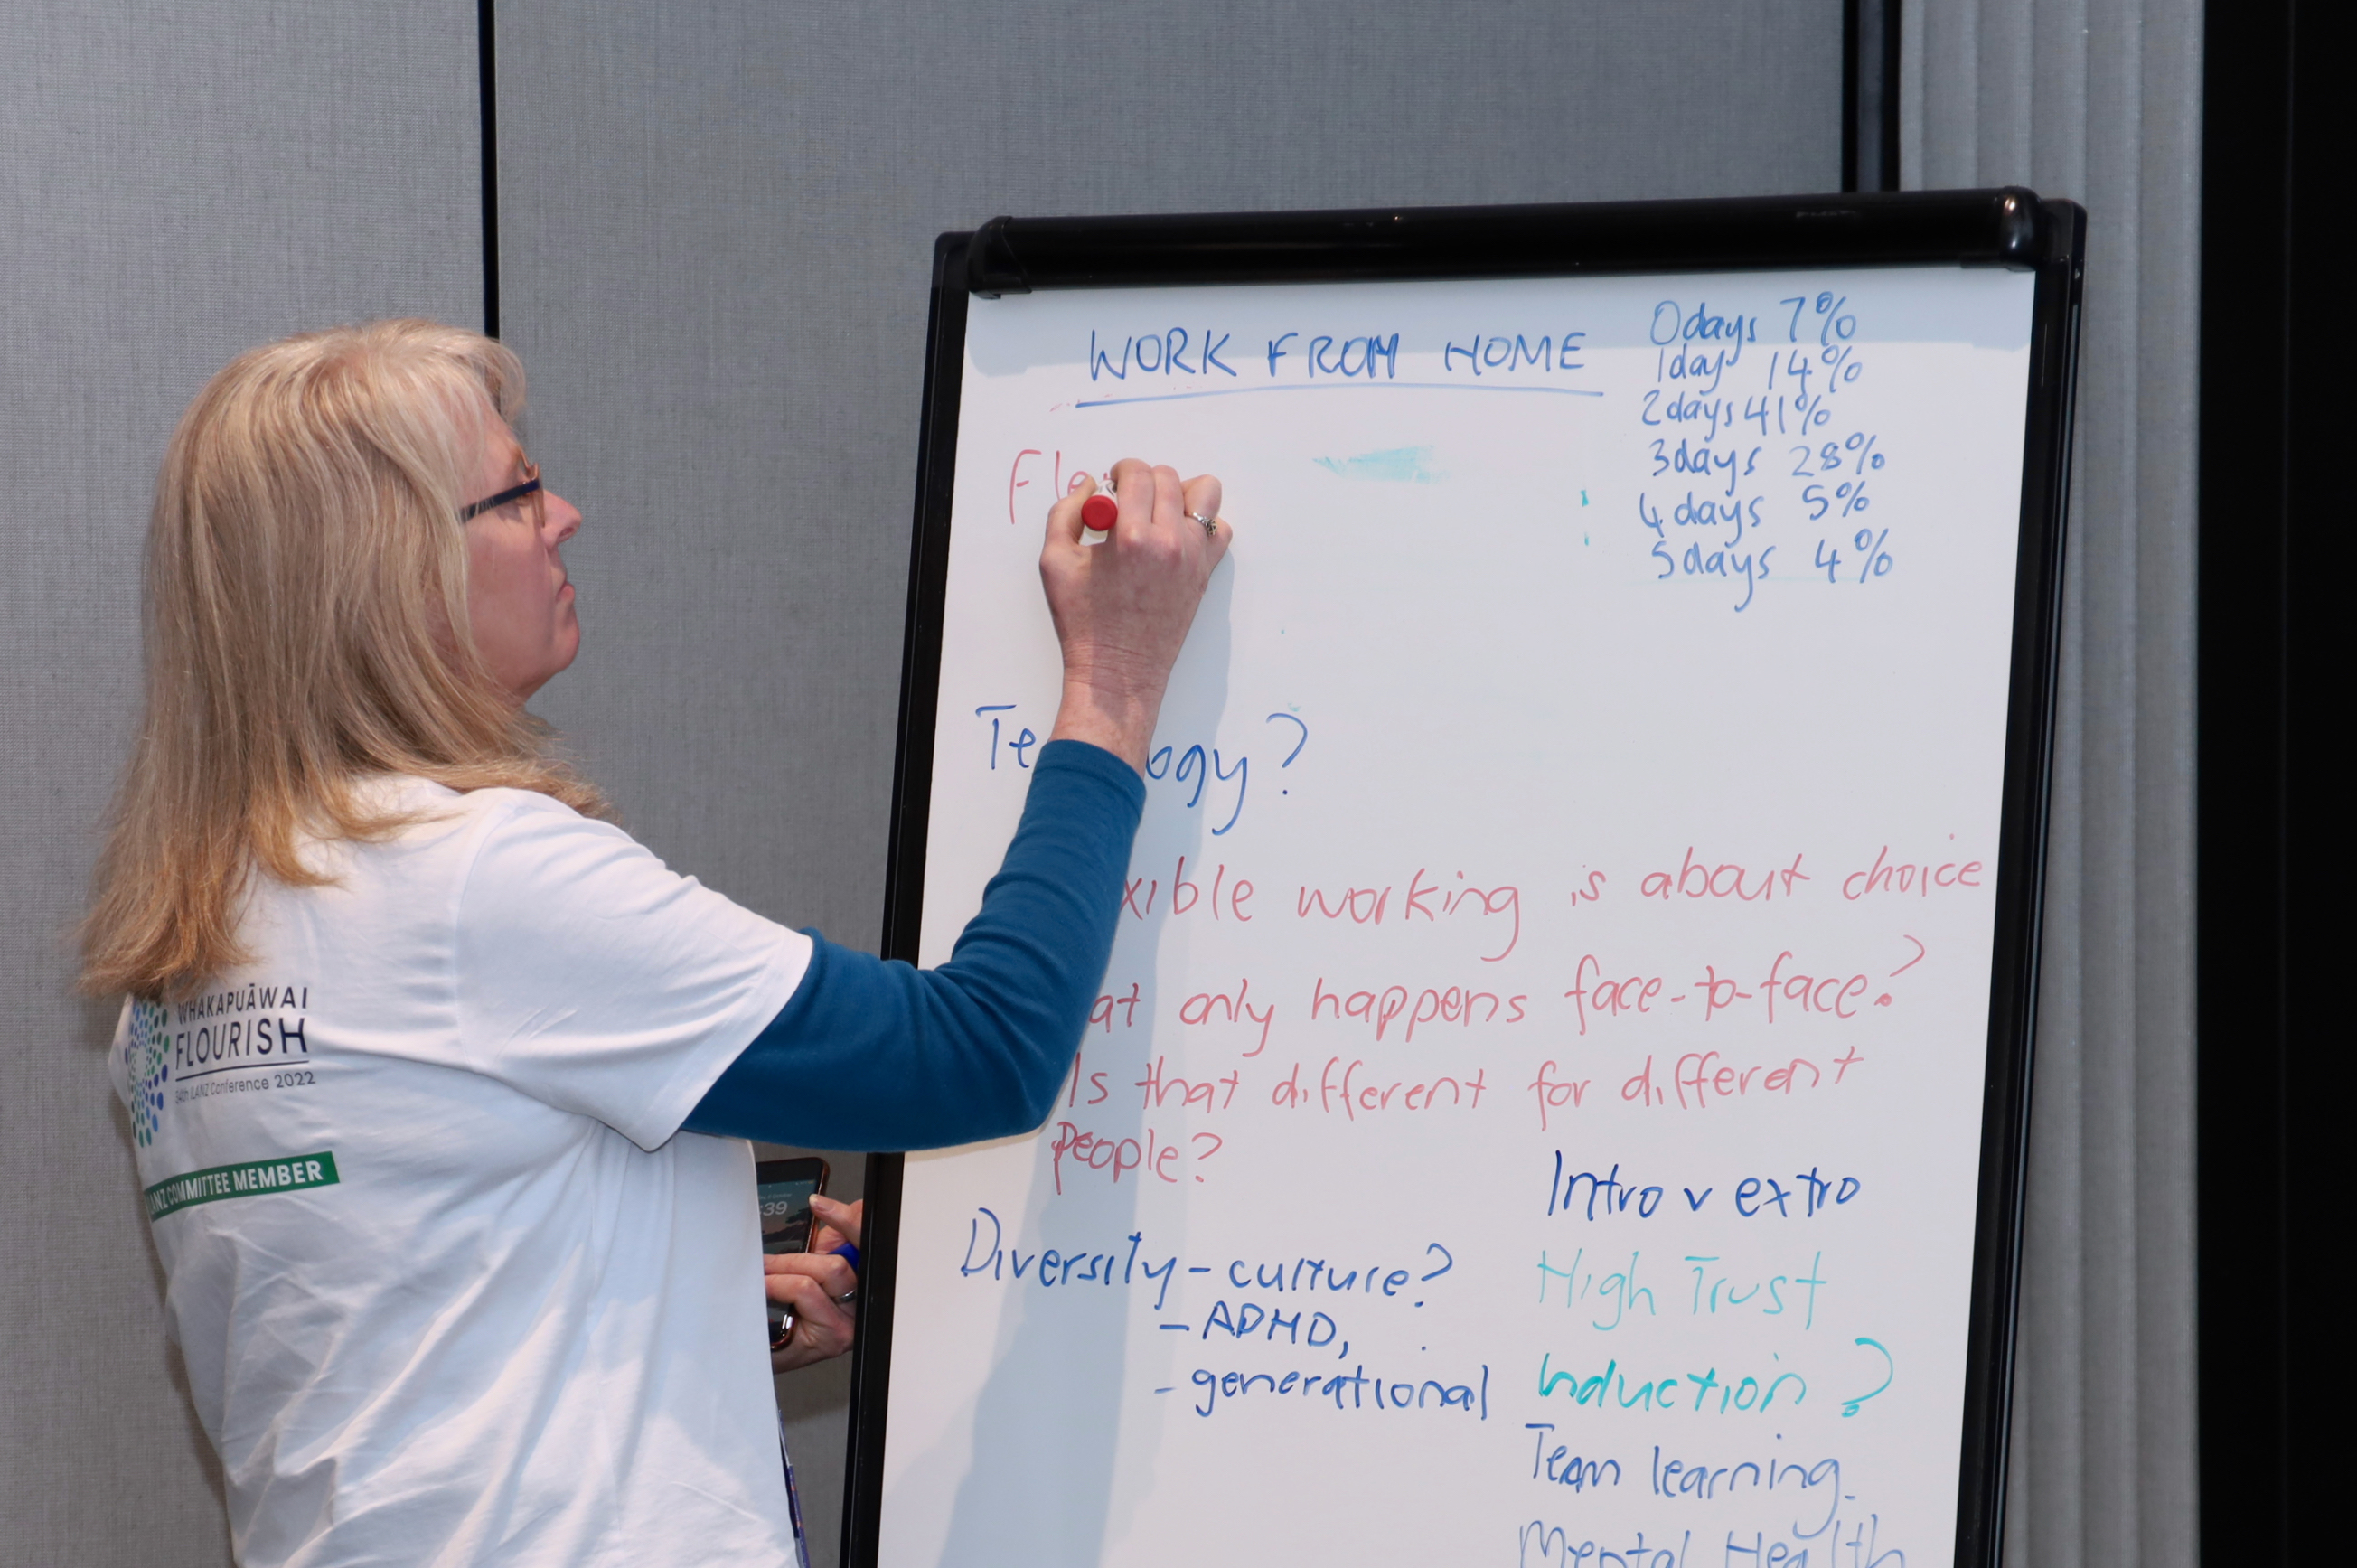 WORK FROM HOME
0days 7%
1day 14%
2days 41%
3days 28%
4 days 5%
5days 4%
working is about choice
only happens face-to-face?
Is that different for different
people?
Intro v extro
Diversity - culture?
- ADHD,
- generational
High Trust
Induction?
Team learning
Mental Health
WHAKAPUĀWAI
FLOURISH
Conference 2022
COMMITTEE MEMBER
:39